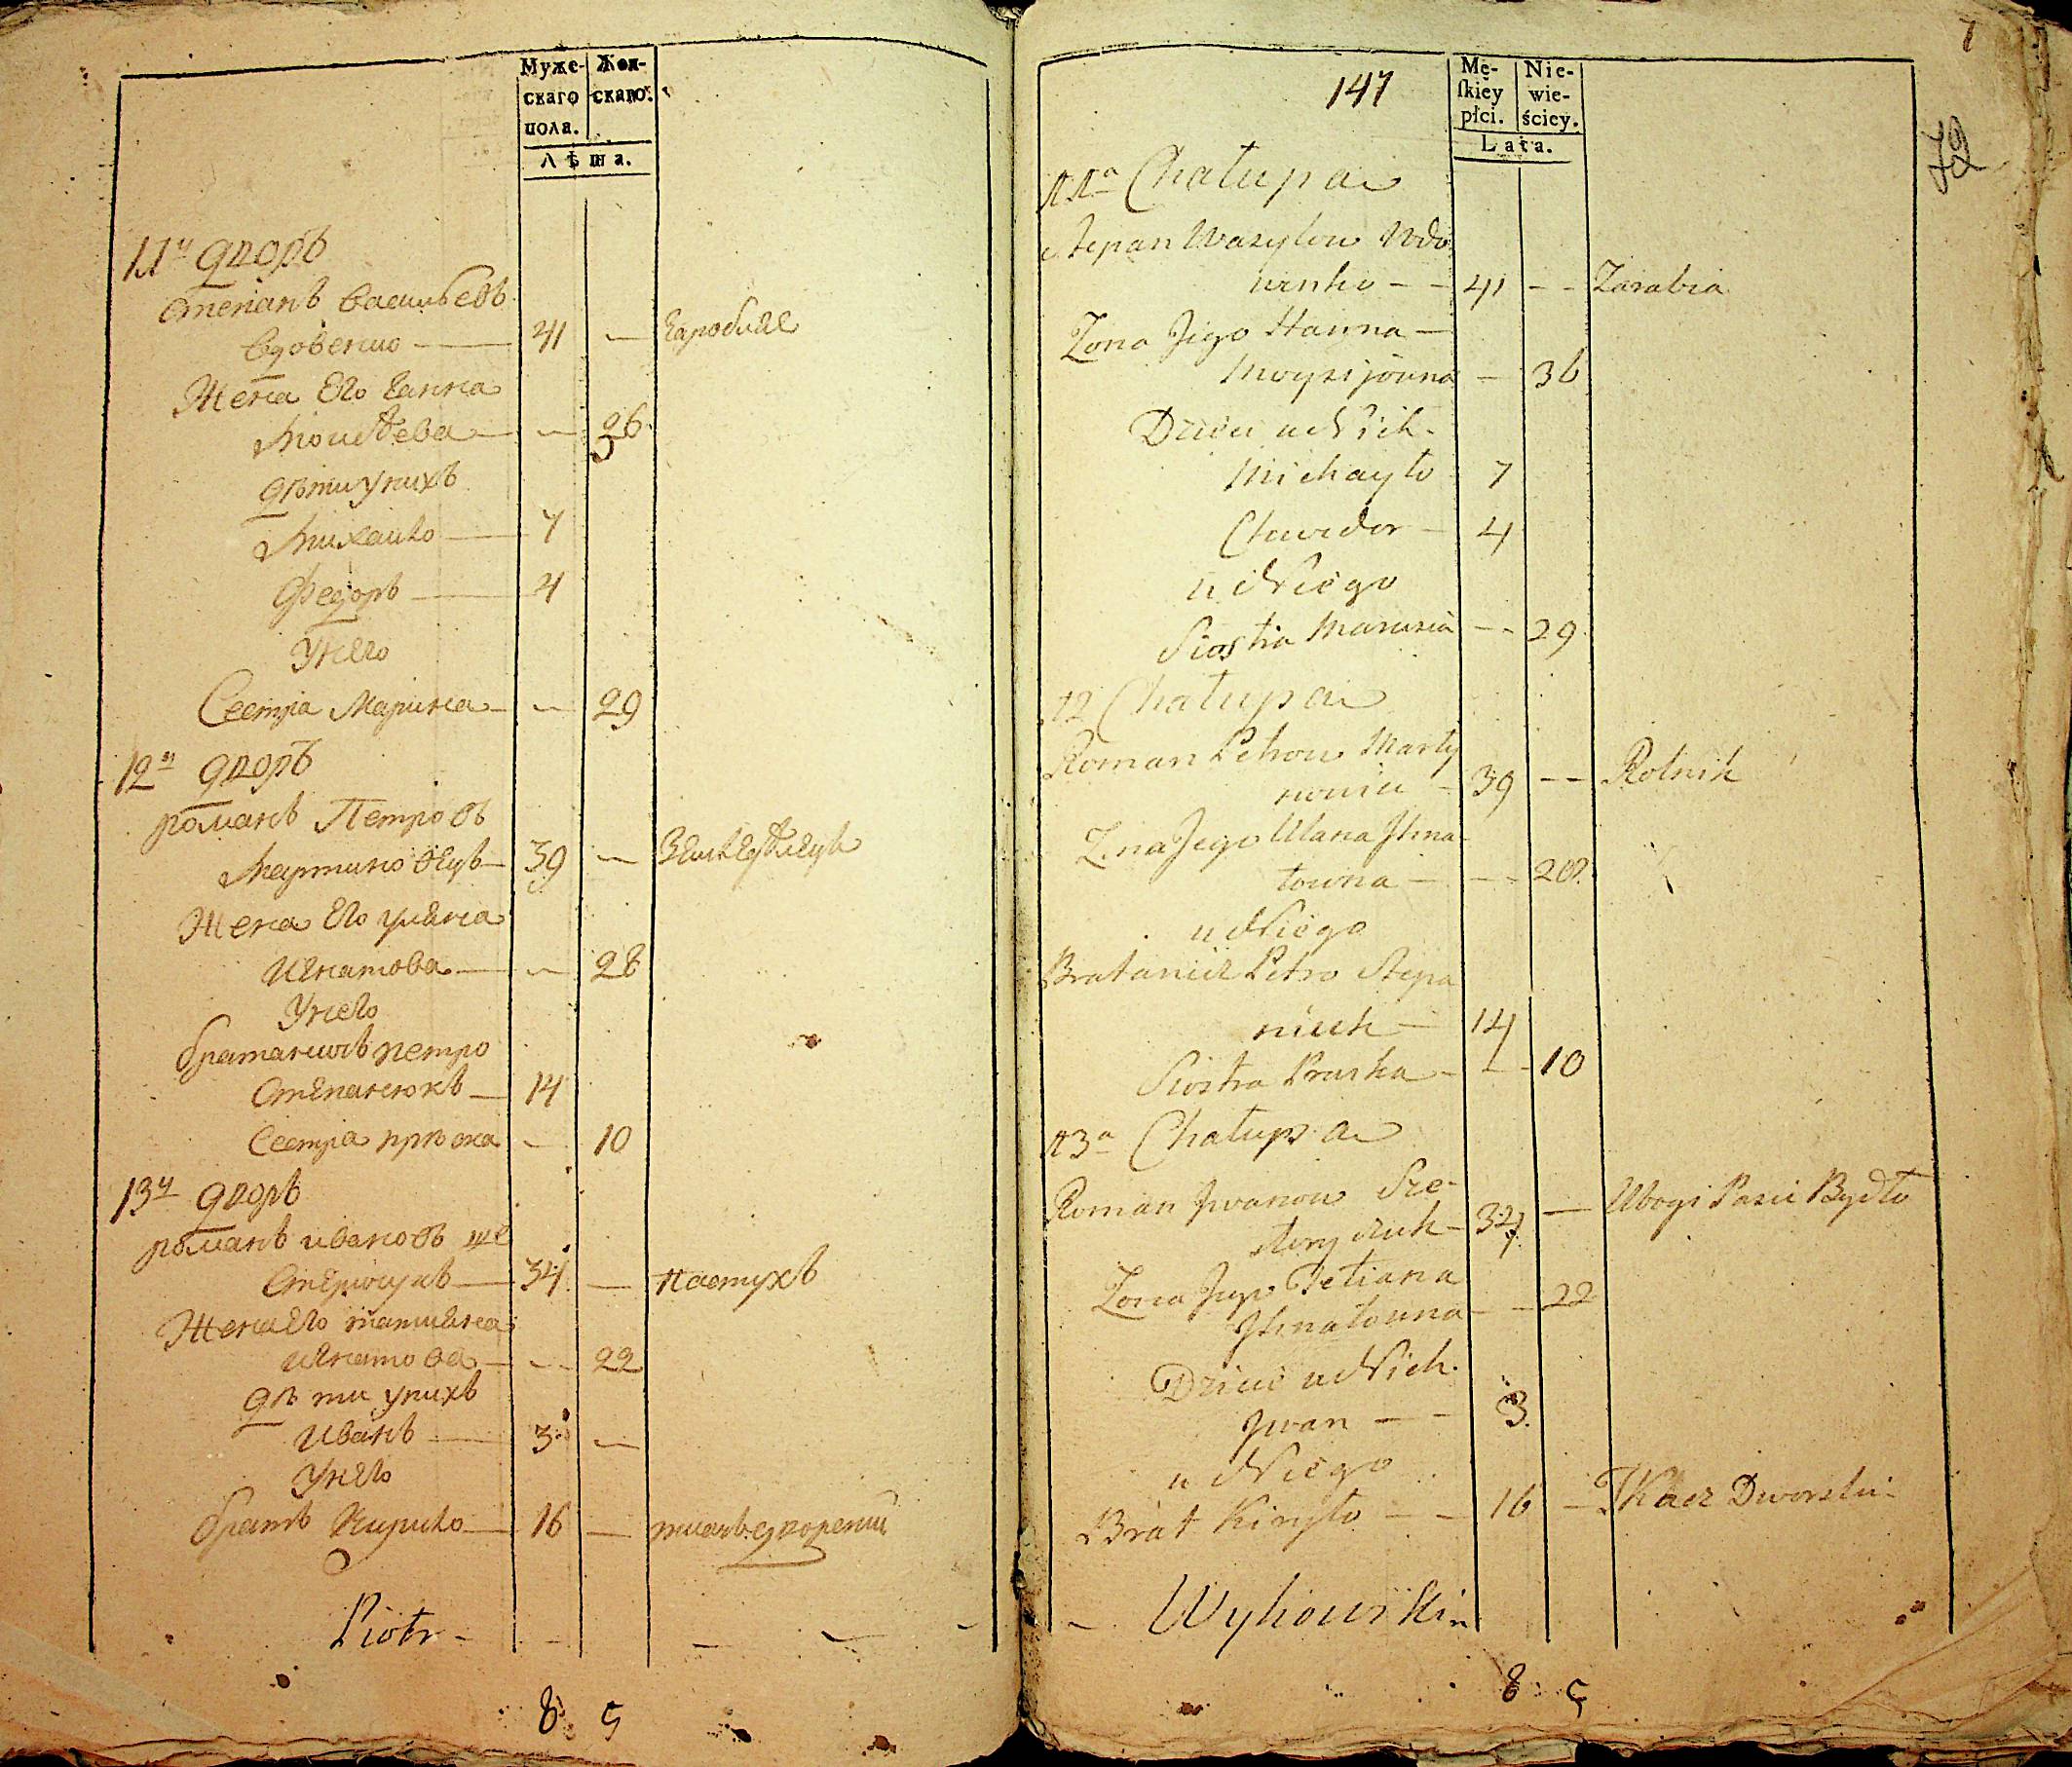 Муже-
скаго
пола.
Жен-
скаго.
Лѣта.
11й дворъ
Степанъ Васильевъ
Вдовенко — 41 — заробляе
Жена его Ганна
Моисѣева — — 36
дѣти у нихъ
Михайло — 7
Федоръ — 4
У него
Сестра Марина — — 29
12й дворъ
Романъ Петровъ
Мартиновецъ — 39 —
Жена его Уляна
Игнатова — — 28
У него
братаничъ Петро
Степанюкъ — 14
Сестра — 10
13й дворъ
Романъ Ивановъ Ше
— 34 — пастухъ
Жена его Татияна
Игнатова — — 22
дѣти у нихъ
Иванъ — 3 —
У него
братъ Кирило — 16 — ткачъ дворский
Piotr -
8 5
7
72
147
Mę-
ſkiey
płci.
Nie-
wie-
ściey.
Lata.
11a Chałupa
Stepan Wasylow Wdo
wenko - - 41 - - Zarabia
Zona Jego Hanna —
Moysijowna — 36
Dzieci u Nich.
Michayło 7
Chwedor — 4
u Niego
Siostra Marusia - - 29
12 Chałupa
Roman Petrow Marty
- 39 - - Rolnik
Zona Jego Ulana Ihna
towna — - - 28
u Niego
Bratanicz Petro Stepa
niuk — 14
Siostra Praska - - - 10
13a Chałupa
Roman Iwanow Sze-
- 34 — Ubogi Pasie Bydło
Zona Jego Tetiana
Ihnatowna - - 22
Dzieci u Nich.
Iwan - - 3.
u Niego
Brat Kiryło - - 16 - Tkacz Dworski -
- Wyhowski
8 5